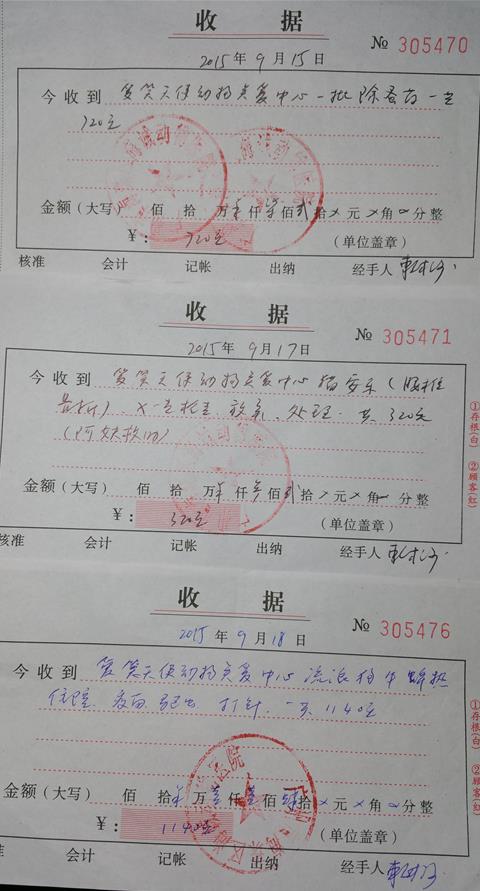 收 据
№ 305470
2015年9月15日
今收到 爱笑天使动物关爱中心一批除蚤药一共
720元
金额(大写) 佰 拾 万 仟柒佰贰拾 元 角 分整
￥: 720元 (单位盖章)
核准 会计 记帐 出纳 经手人
收 据
№ 305471
2015年9月17日
今收到 爱笑天使动物关爱中心猫安乐(腰椎
骨折)、X 处理 共320元
金额(大写) 佰 拾 万 仟 佰 拾 元 角 分整
￥: 320元 (单位盖章)
核准 会计 记帐 出纳 经手人
①存根(白) ②顾客(红)
收 据
№ 305476
2015年9月18日
今收到 爱笑天使动物关爱中心流浪狗 犬瘟热
住院 打针 一共1140元
金额(大写) 佰 拾 万壹仟壹佰肆拾 元 角 分整
￥: 1140元 (单位盖章)
核准 会计 记帐 出纳 经手人
①存根(白) ②顾客(红)